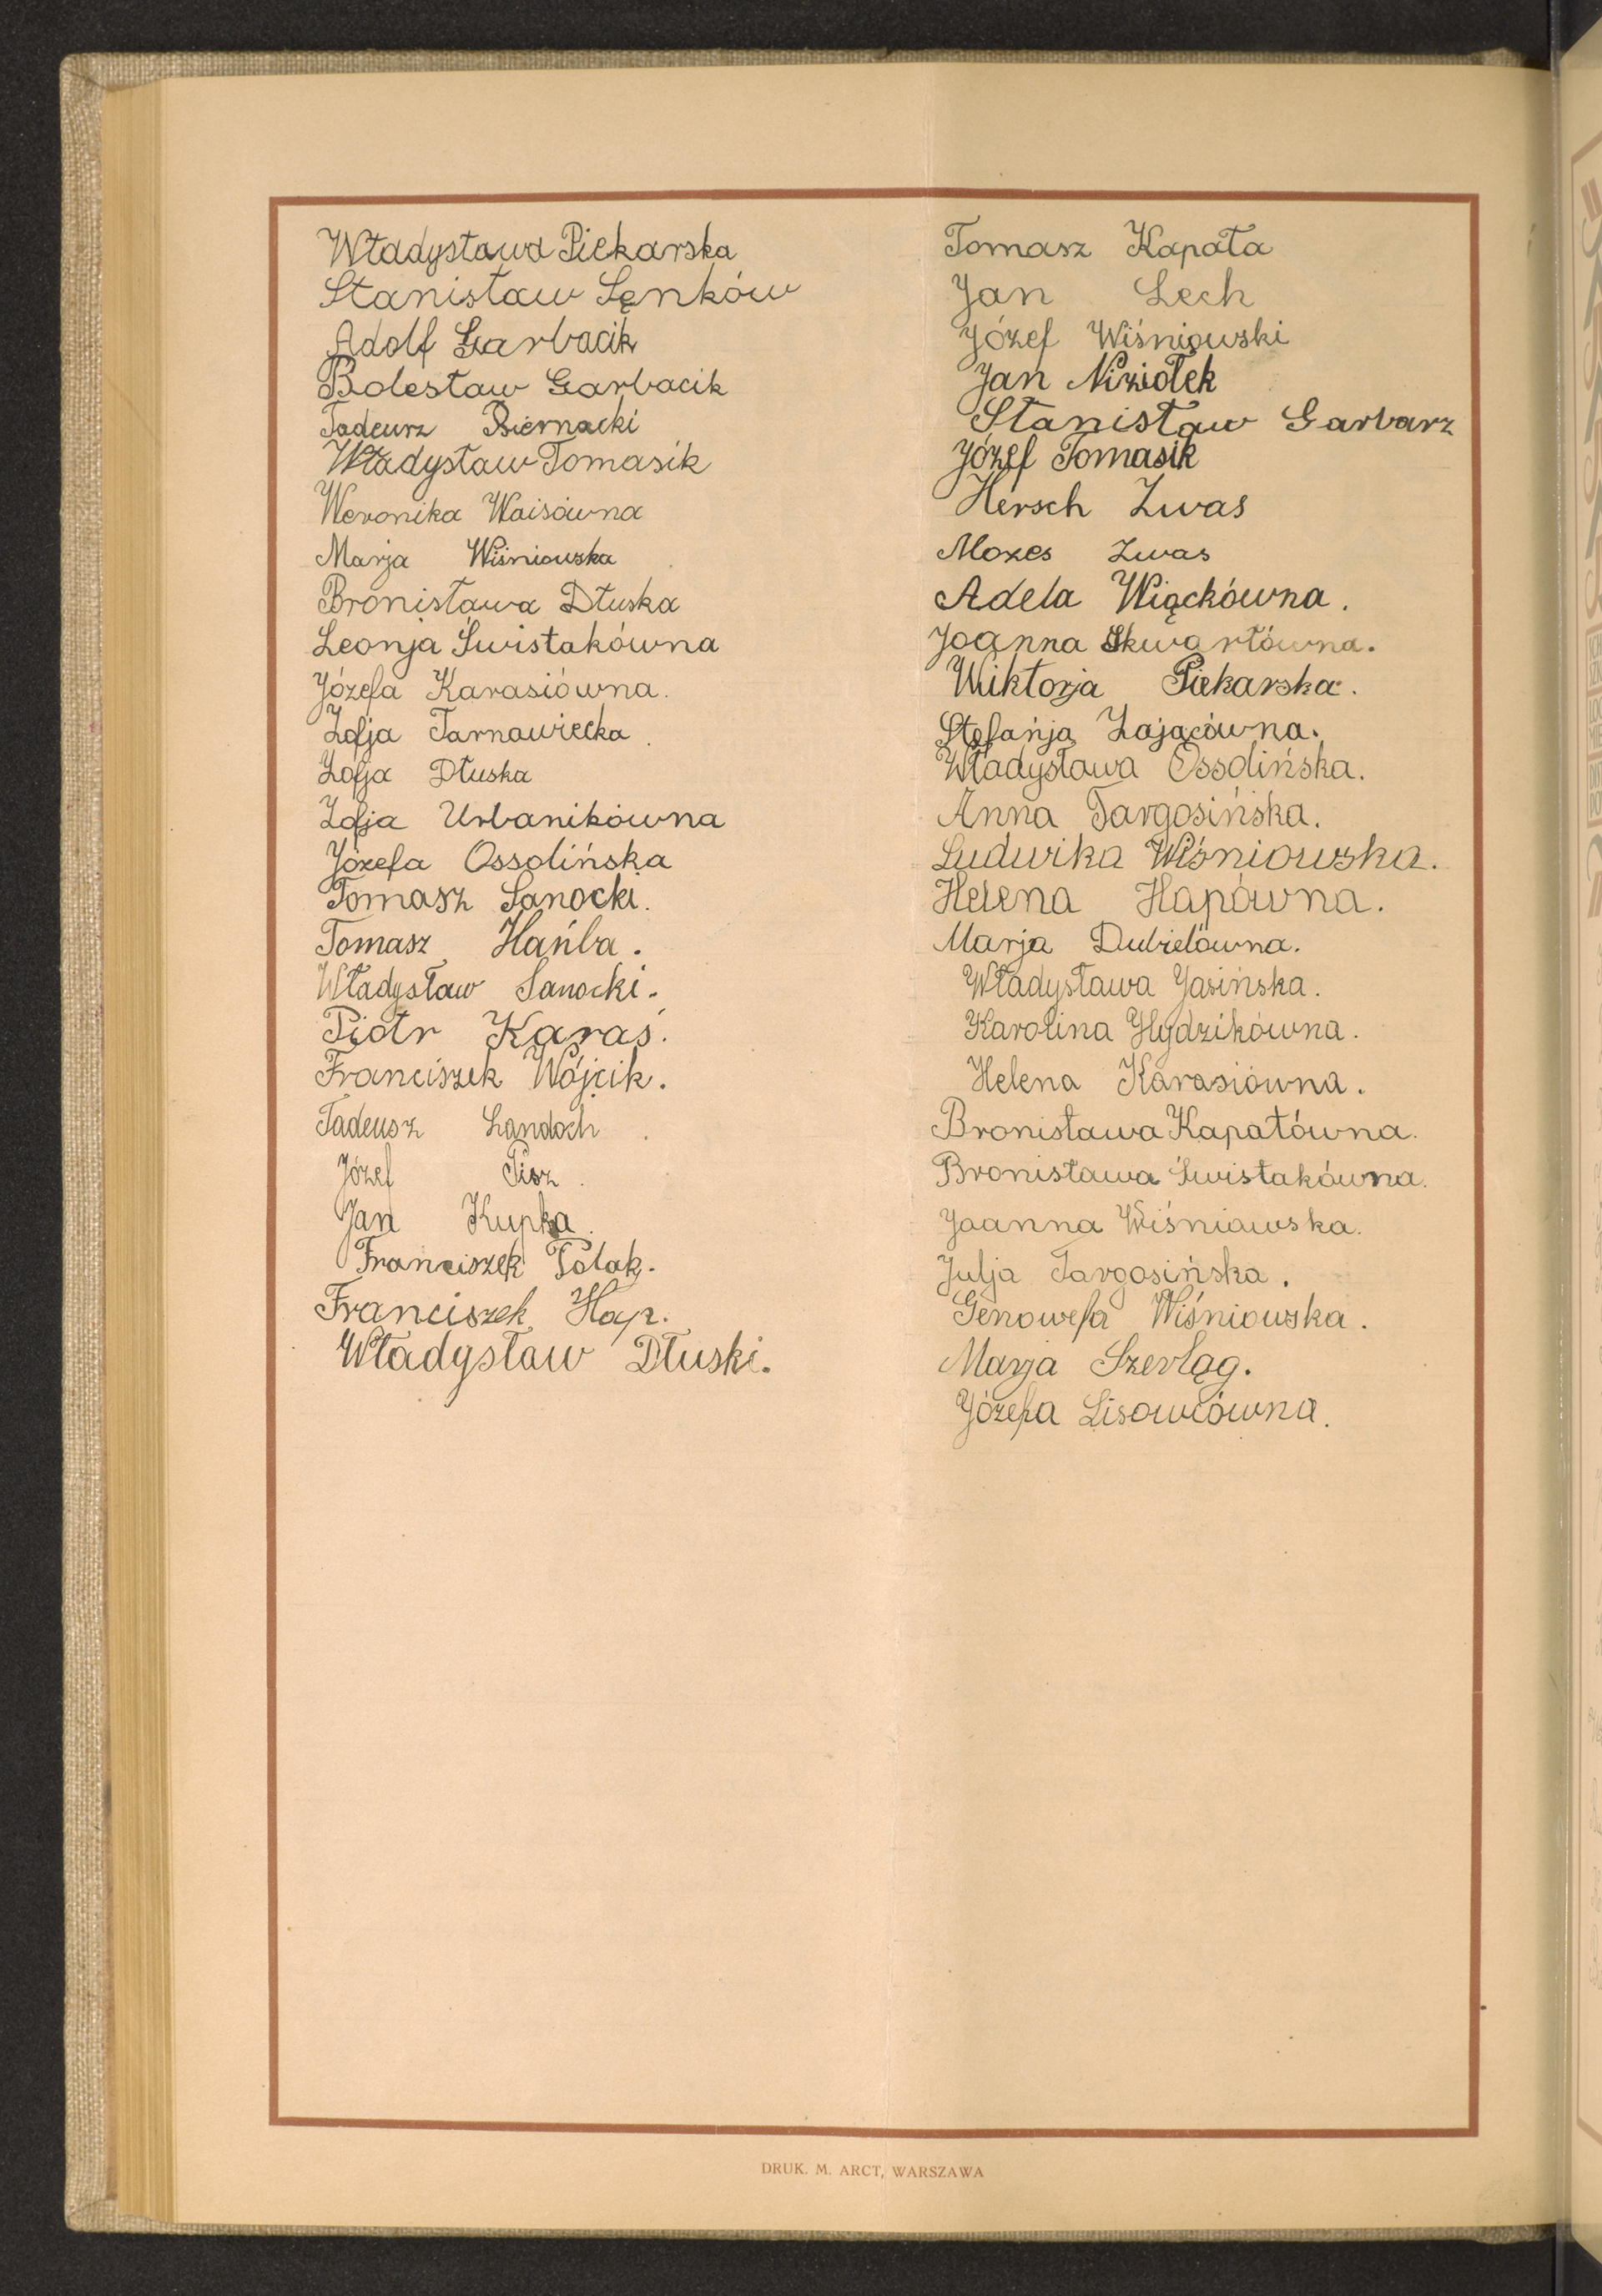 Władysława Piekarska
Stanisław Sęnków
Adolf Garbacik
Bolesław Garbacik
Tadeurz Biernacki
Władysław Tomasik
Weronika Waisówna
Marja Wiśniowska
Bronisława Dłuska
Leonja Świstakówna
Józefa Karasiówna.
Zofja Tarnawiecka.
Zofja Dłuska
Zofja Urbanikówna
Józefa Ossolińska
Tomasz Sanocki.
Tomasz Hańba.
Władysław Sanocki.
Piotr Karaś.
Franciszek Wójcik.
Tadeusz Landoch.
Józef Pisz.
Jan Kupka.
Franciszek Polak.
Franciszek Hap.
Władysław Dłuski.
Tomasz Kapała
Jan Lech
Józef Wiśniowski
Jan Niziołek
Stanisław Garbarz
Józef Tomasik
Hersch Zwas
Mozes Zwas
Adela Wiąckówna.
Joanna Skwarłówna.
Wiktorja Piekarska.
Stefanja Zającówna.
Władysława Ossolińska.
Anna Targosińska.
Ludwika Wiśniowska.
Helena Hapówna.
Marja Dubielówna.
Władysława Jasińska.
Karolina Hydzikówna.
Helena Karasiówna.
Bronisława Kapałówna.
Bronisława Świstakówna.
Joanna Wiśniowska.
Julja Targosińska.
Genowefa Wiśniowska.
Marja Szerląg.
Józefa Lisowcówna.
DRUK. M. ARCT, WARSZAWA